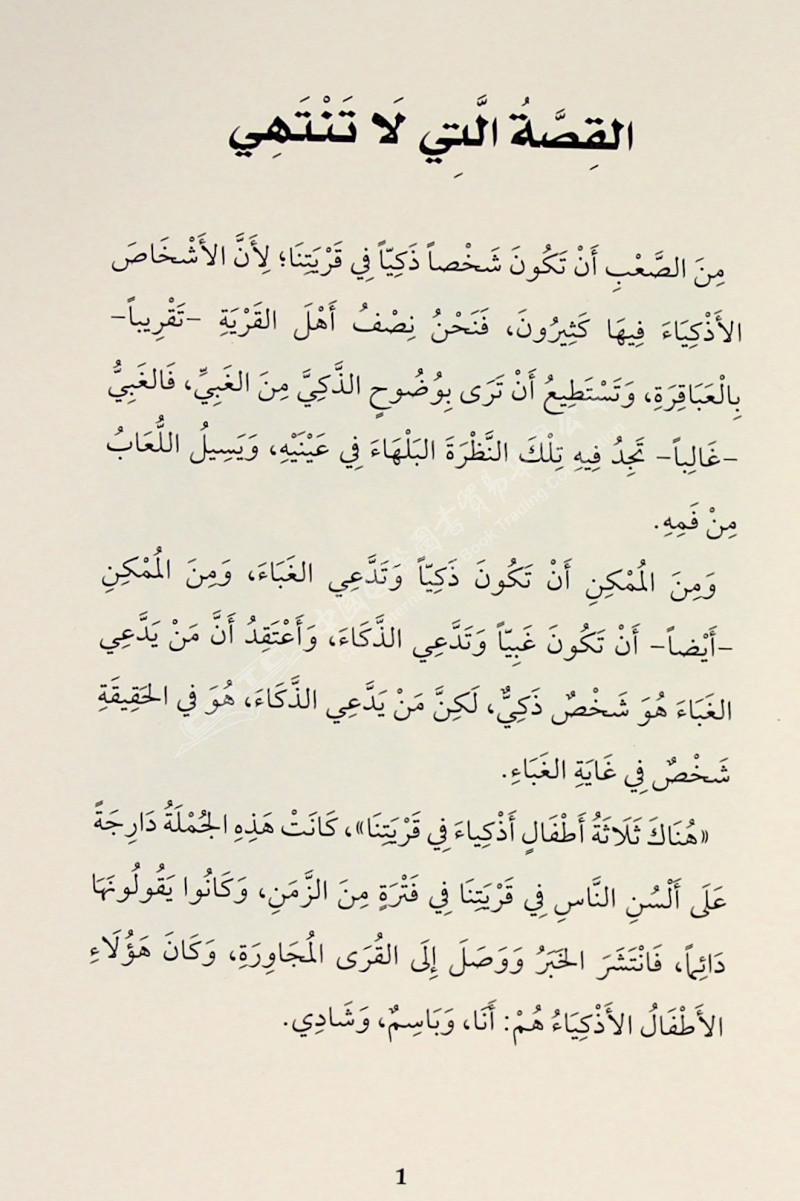 القِصَّةُ الَّتِي لَا تَنْتَهِي
مِنَ الصَّعْبِ أَنْ تَكُونَ شَخْصاً ذَكِيّاً فِي قَرْيَتِنَا؛ لِأَنَّ الأَشْخَاصَ
الأَذْكِيَاءَ فِيهَا كَثِيرُونَ، فَنَحْنُ نِصْفُ أَهْلَ القَرْيَةِ -تَقْرِيباً-
بِالْعَبَاقِرَةِ، وَتَسْتَطِيعُ أَنْ تَرَى بِوُضُوحٍ الذَّكِيَّ مِنَ الغَبِيِّ، فَالغَبِيُّ
-غَالِباً- تَجِدُ فِيهِ تِلْكَ النَّظْرَةَ البَلْهَاءَ فِي عَيْنَيْهِ، وَيَسِيلُ اللُّعَابُ
مِنْ فَمِهِ.
وَمِنَ المُمْكِنِ أَنْ تَكُونَ ذَكِيّاً وَتَدَّعِي الغَبَاءَ، وَمِنَ المُمْكِنِ
-أَيْضاً- أَنْ تَكُونَ غَبِيّاً وَتَدَّعِي الذَّكَاءَ، وَأَعْتَقِدُ أَنَّ مَنْ يَدَّعِي
الغَبَاءَ هُوَ شَخْصٌ ذَكِيٌّ، لَكِنَّ مَنْ يَدَّعِي الذَّكَاءَ، هُوَ فِي الحَقِيقَةِ
شَخْصٌ فِي غَايَةِ الغَبَاءِ.
«هُنَاكَ ثَلَاثَةُ أَطْفَالٍ أَذْكِيَاءَ فِي قَرْيَتِنَا»، كَانَتْ هَذِهِ الجُمْلَةُ دَارِجَةً
عَلَى أَلْسُنِ النَّاسِ فِي قَرْيَتِنَا فِي فَتْرَةٍ مِنَ الزَّمَنِ، وَكَانُوا يَقُولُونَهَا
دَائِماً، فَانْتَشَرَ الخَبَرُ وَوَصَلَ إِلَى القُرَى المُجَاوِرَةِ، وَكَانَ هَؤُلَاءِ
الأَطْفَالُ الأَذْكِيَاءُ هُمْ: أَنَا، وَبَاسِمٌ، وَشَادِي.
1